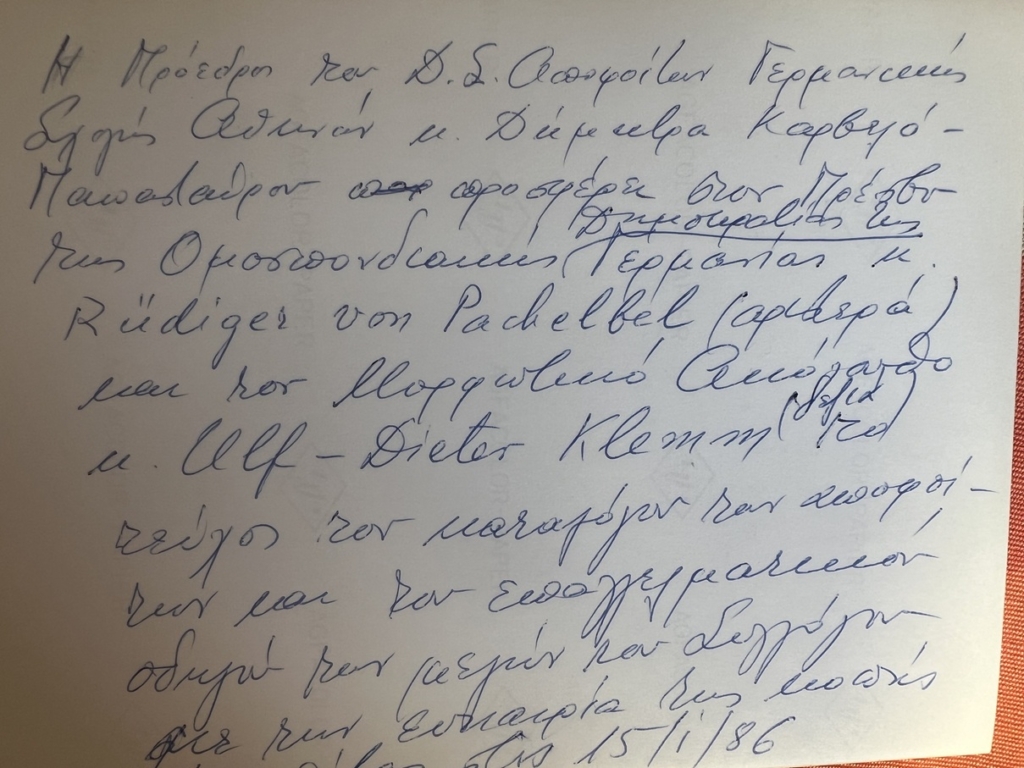 Η Πρόεδρος του Δ.Σ. Αποφοίτων Γερμανικής
Σχολής Αθηνών κ. Δήμητρα Καρβελά-
Παπασταύρου προσφέρει στον Πρέσβυ
Δημοκρατίας της
της Ομοσπονδιακής Γερμανίας κ.
Rüdiger von Pachelbel (αριστερά)
και τον Μορφωτικό Ακόλουθο
κ. Ulf-Dieter Klemm (δεξιά) το
τεύχος του καταλόγου των αποφοί-
των και τον επαγγελματικόν
οδηγόν των μελών του Συλλόγου
με την ευκαιρία της κοπής
στις 15/1/86